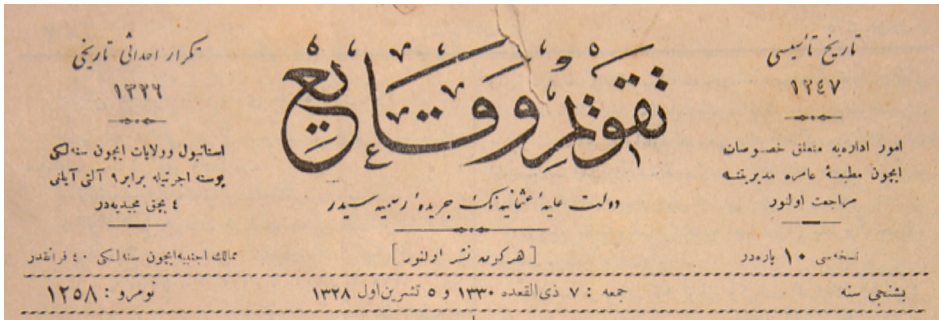 تاریخ تأسیسی
١٢٤٧
امور اداره‌یه متعلق خصوصات
ایچون مطبعۀ عامره مدیریتنه
مراجعت اولنور
نسخه‌سی ١٠ پاره‌در
تقویم وقایع
دولت علیۀ عثمانیه‌نك جریدۀ رسمیه‌سیدر
[ هركون نشر اولنور ]
تكرار احداثی تاریخی
١٣٢٦
استانبول وولایات ایچون سنه‌لكی
پوسته اجرتیله برابر ٩ آلتی آیلغی
٤ بچق مجیدیه‌در
ممالك اجنبیه ایچون سنه‌لكی ٤٠ فرانقدر
بشنجی سنه
جمعه : ٧ ذی‌القعده ١٣٣٠ و ٥ تشرین‌اول ١٣٢٨
نومرو : ١٢٥٨